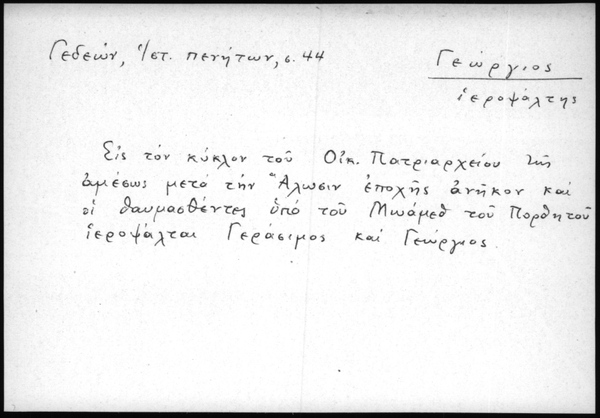 Γεδεών, Ἱστ. πενήτων, σ. 44
Γεώργιος
ἱεροψάλτης
Εἰς τὸν κύκλον τοῦ Οἰκ. Πατριαρχείου τῆς
ἀμέσως μετὰ τὴν Ἅλωσιν ἐποχῆς ἀνῆκον καὶ
οἱ θαυμασθέντες ὑπὸ τοῦ Μωάμεθ τοῦ Πορθητοῦ
ἱεροψάλται Γεράσιμος καὶ Γεώργιος.